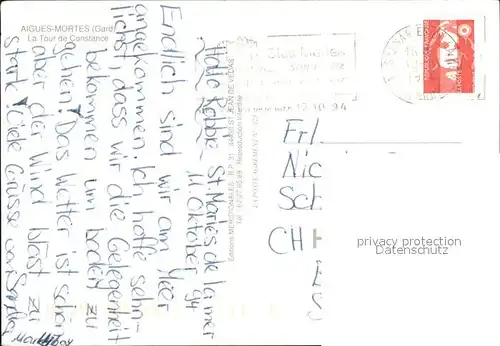 AIGUES-MORTES (Gard)
La Tour de Constance
Hallo Rebbe, St. Maries de la mer
11. Oktober 94
Endlich sind wir am Meer
angekommen. Ich hoffe sehn-
lichst, dass wir die Gelegenheit
bekommen um baden zu
gehen. Das Wetter ist schön
aber der Wind bläst zu
stark. Viele Grüsse von Sandra
Editions MERIDIONALES - B.P. 31 - 34430 ST JEAN DE VEDAS
12.10.94
REPUBLIQUE FRANÇAISE
Frl
Nic
Sch
CH
privacy protection
Datenschutz